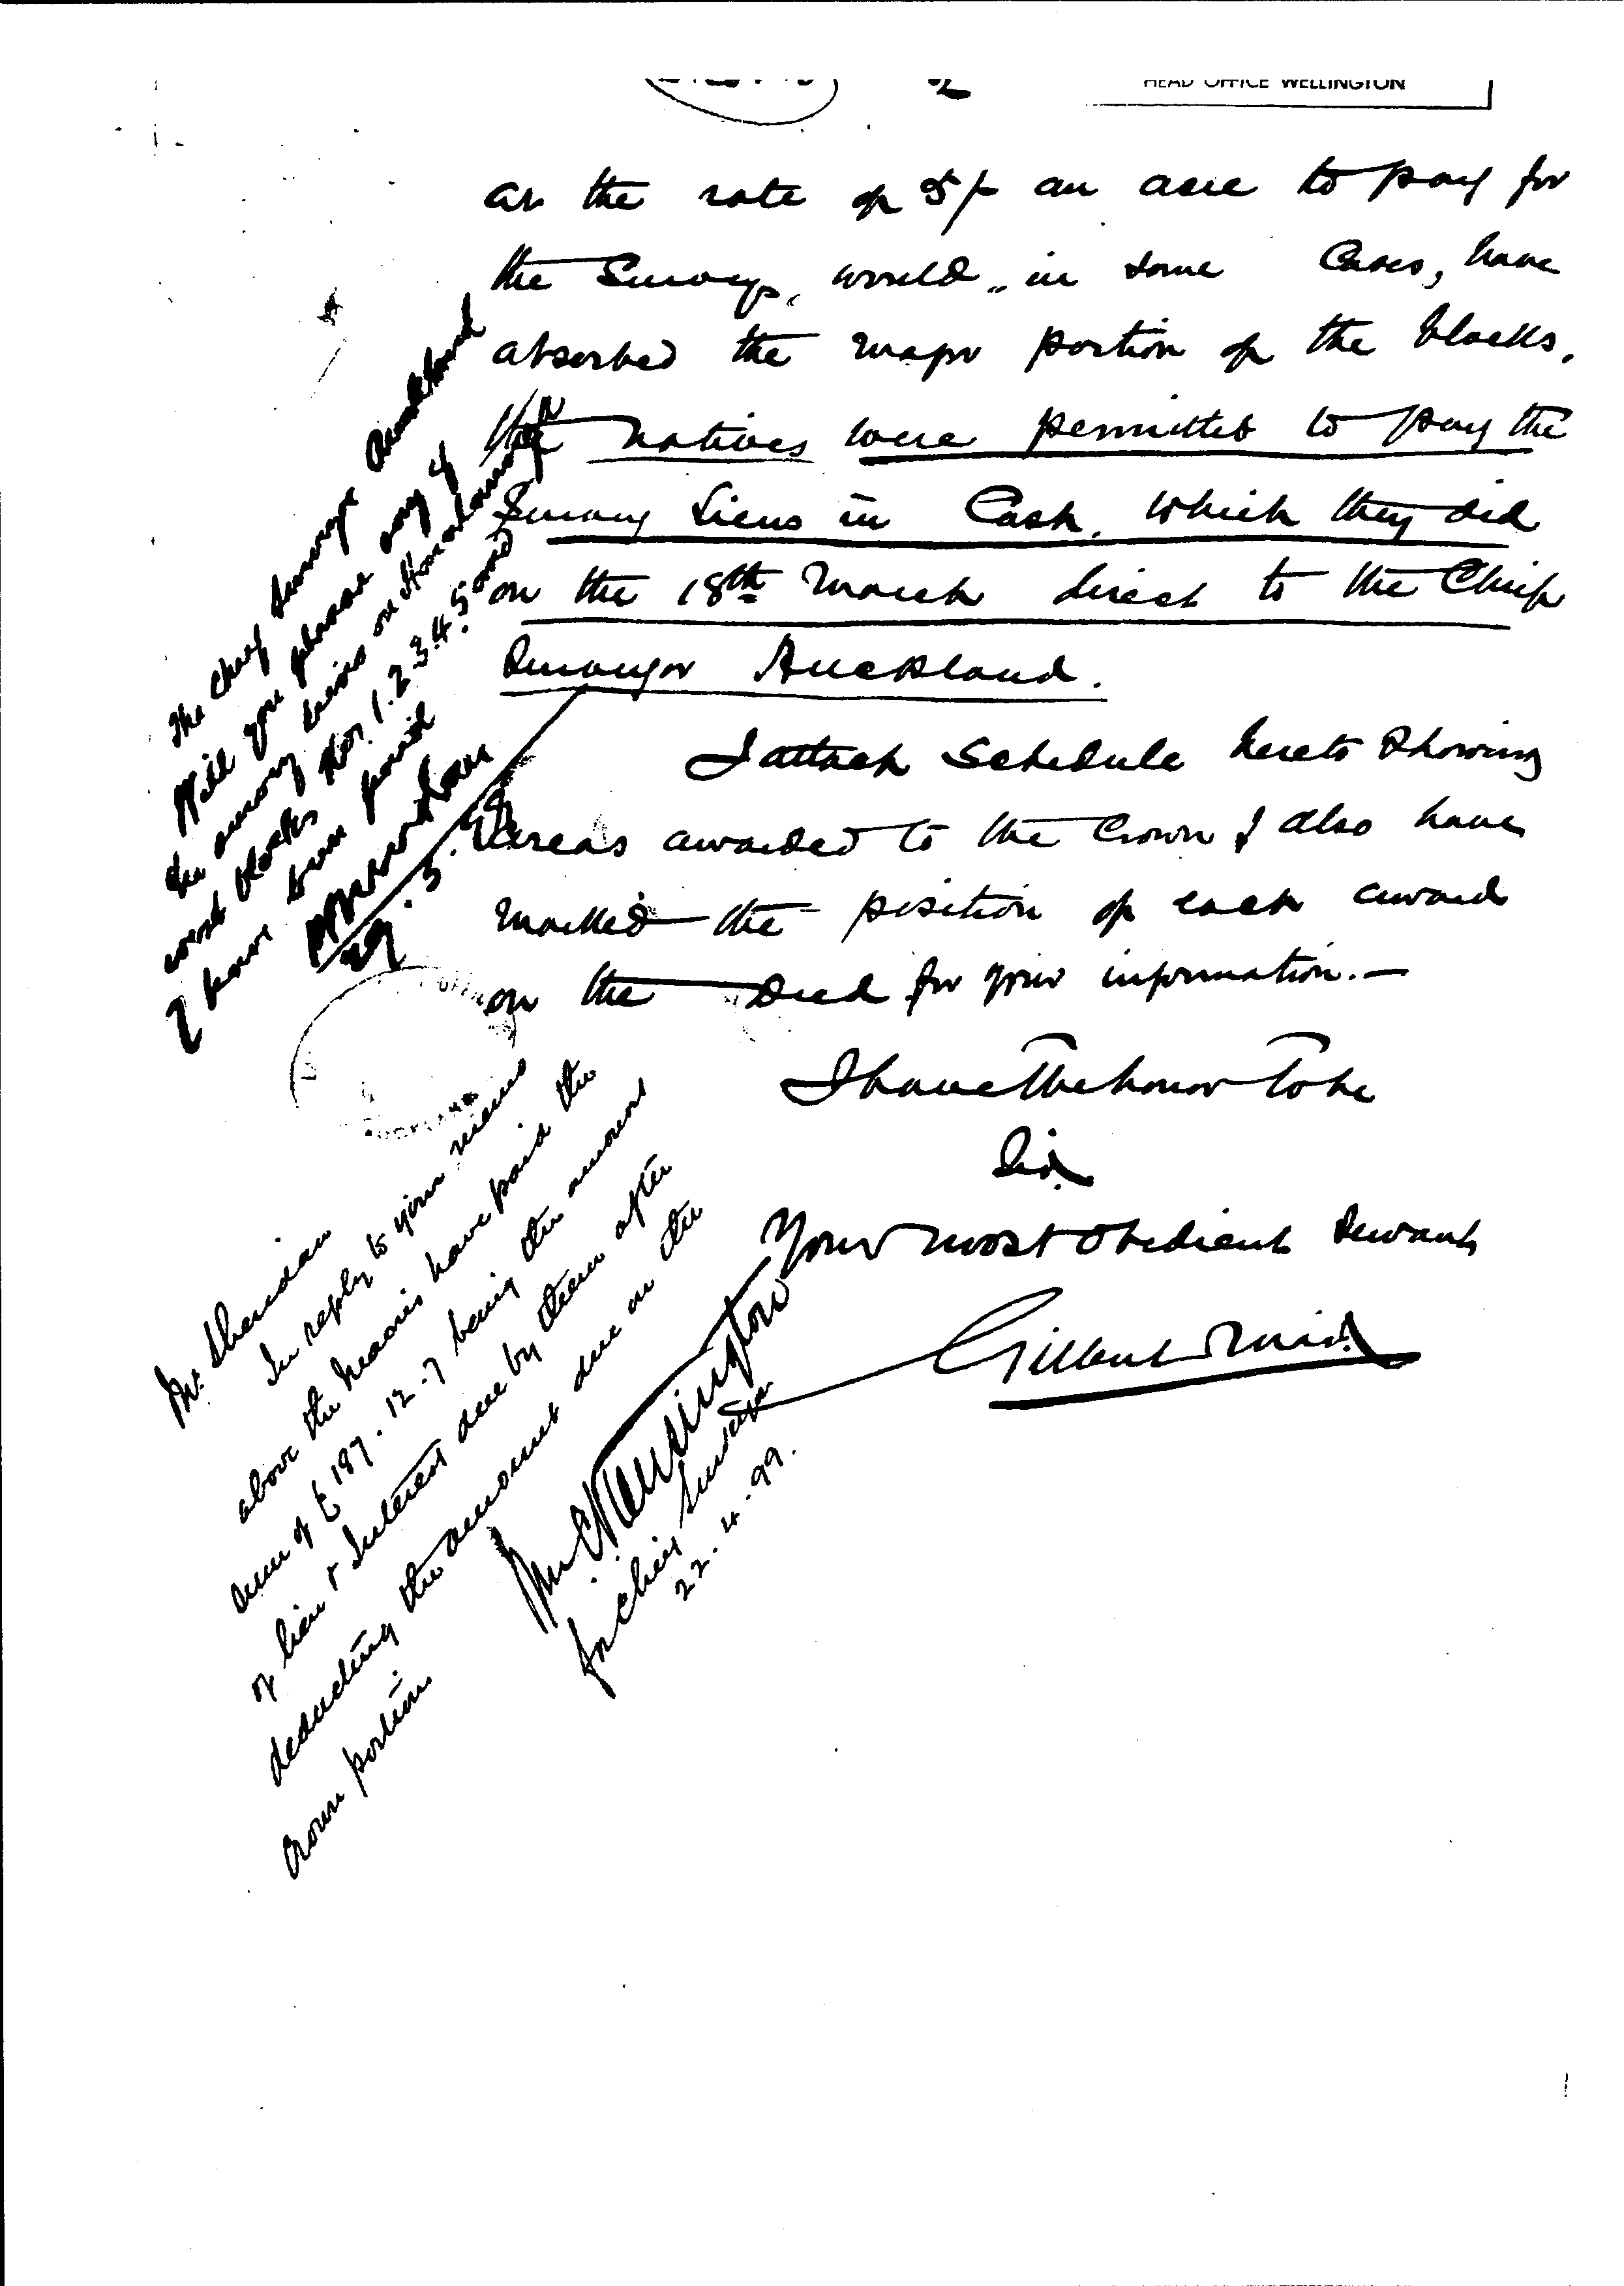 HEAD OFFICE WELLINGTON
2
at the rate of 5/- an acre to pay for
the Surveys, would, in some Cases, have
absorbed the major portion of the blocks,
the natives were permitted to pay the
Survey Liens in Cash, which they did
on the 18th March direct to the Chief
Surveyor Auckland.
I attach Schedule hereto Showing
areas awarded to the Crown & also have
marked the position of each award
on the Deed for your information.—
I have the honor to be
Sir
Your most obedient Servant
Gilbert Mair
The Chief Surveyor Auckland
Will you please say if
the survey liens on
west blocks Nos. 1.2.3.4.5 and
7 have been paid
29.3.99
Mr. Sheridan
In reply to your memo
above the maoris have paid the
sum of £187.12.7 being the amount
of lien & Interest due by them after
deducting the amount due on the
crown portion
Kensington
for Chief Surveyor
22.4.99.